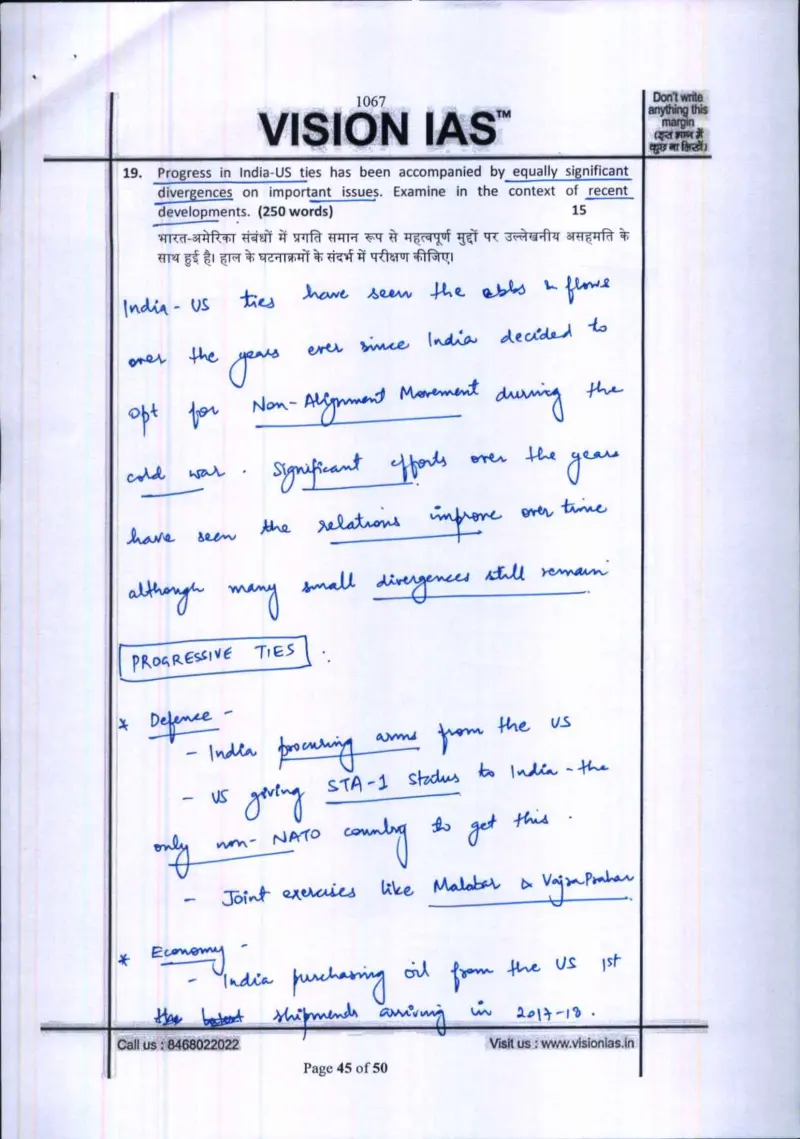 1067
VISION IAS™
Don't write
anything this
margin
(इस भाग में
कुछ ना लिखें)
19. Progress in India-US ties has been accompanied by equally significant
divergences on important issues. Examine in the context of recent
developments. (250 words) 15
भारत-अमेरिका संबंधों में प्रगति समान रूप से महत्वपूर्ण मुद्दों पर उल्लेखनीय असहमति के
साथ हुई है। हाल के घटनाक्रमों के संदर्भ में परीक्षण कीजिए।
India - US ties have seen the ebbs & flows
over the years ever since India decided to
opt for Non-Alignment Movement during the
cold war. Significant efforts over the years
have seen the relations improve over time
although many small divergences still remain
PROGRESSIVE TIES :
* Defence -
- India procuring arms from the US
- US giving STA-1 Status to India - the
only non-NATO country to get this.
- Joint exercises like Malabar & Vajra Prahar
* Economy -
- India purchasing oil from the US 1st
shipments arriving in 2017-18.
Call us : 8468022022
Visit us : www.visionias.in
Page 45 of 50